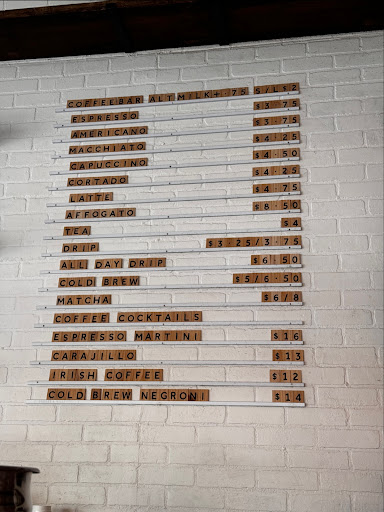 COFFEEBAR ALT MILK+.75 S/L $2
ESPRESSO $3.75
AMERICANO $3.75
MACCHIATO $4.25
CAPUCCINO $4.50
CORTADO $4.25
LATTE $4.75
AFFOGATO $8.50
TEA $4
DRIP $3.25/3.75
ALL DAY DRIP $6.50
COLD BREW $5/6.50
MATCHA $6/8
COFFEE COCKTAILS
ESPRESSO MARTINI $16
CARAJILLO $13
IRISH COFFEE $12
COLD BREW NEGRONI $14